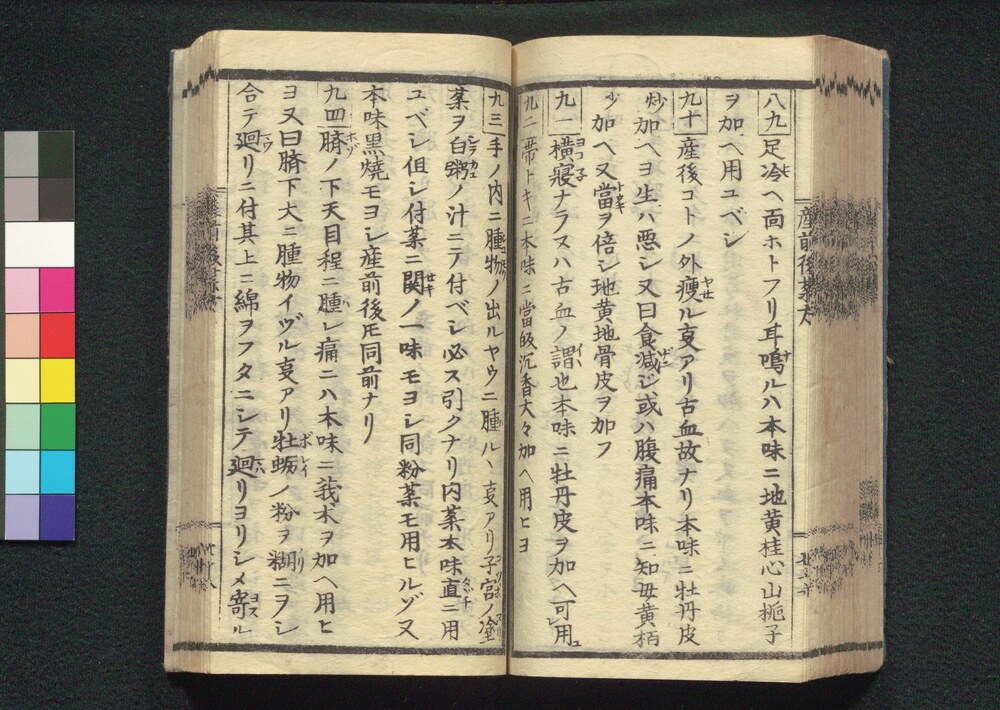 八九 足冷ヘ面ホトフリ耳鳴ルハ本味ニ地黄桂心山梔子
ヲ加ヘ用ユベシ
九十 産後コトノ外瘦ル亥アリ古血故ナリ本味ニ牡丹皮
炒加ヘヨ生ハ悪シ又曰食減ジ或ハ腹痛本味ニ知母黄栢
少加ヘ又當ヲ倍シ地黄地骨皮ヲ加フ
九一 横寢ナラスハ古血ノ謂也本味ニ牡丹皮ヲ加ヘ可用
九二 帯トキニ本味ニ當皈沉香大々加ヘ用ヒヨ
九三 手ノ内ニ腫物ノ出ルヤウニ腫ル丶亥アリ子宮ノ塗
薬ヲ白粥ノ汁ニテ付ベシ必ス引クナリ内薬本味直ニ用
ユベシ但シ付薬ニ関ノ一味モヨシ同粉薬モ用ヒルヅ又
本味黒焼モヨシ産前後𪜈同前ナリ
九四 臍ノ下天目程ニ腫レ痛ニハ本味ニ莪朮ヲ加ヘ用ヒ
ヨ又曰臍下大ニ腫物イヅル亥アリ牡蛎ノ粉ヲ糊ニヲシ
合テ廻リニ付其上ニ綿ヲフタニシテ廻リヨリシメ寄ル
産前後薬方